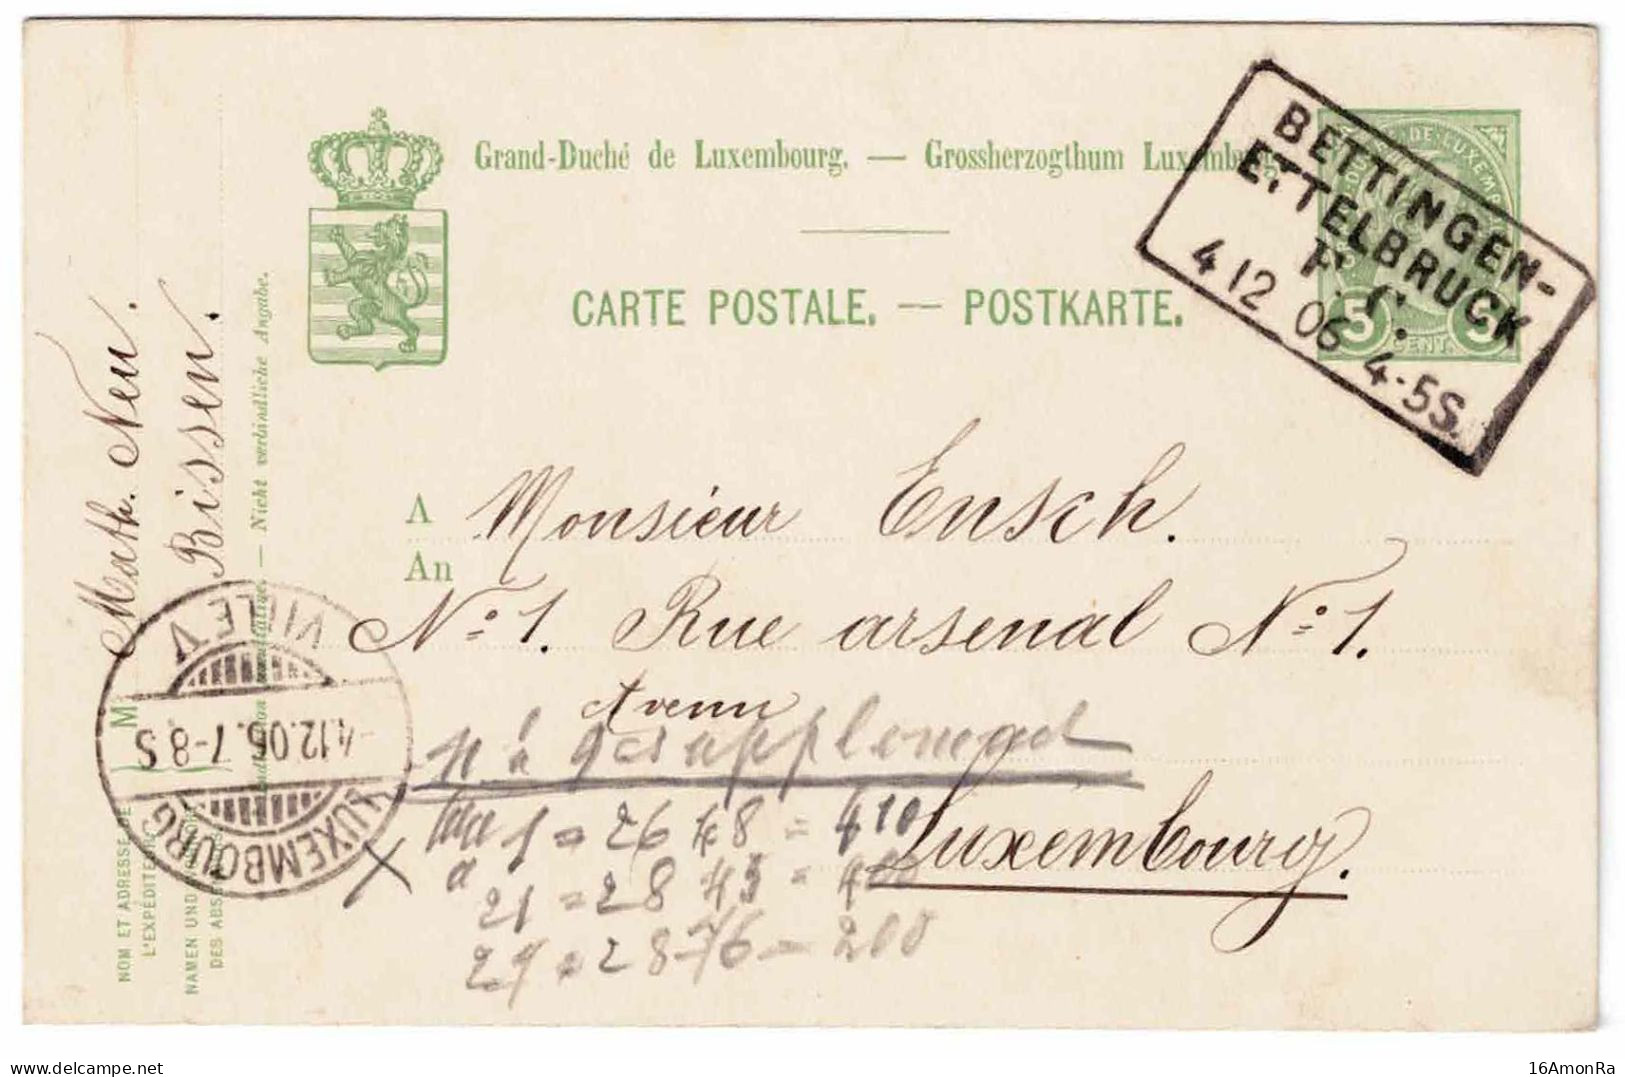 Grand-Duché de Luxembourg. — Grossherzogthum Luxemburg.
CARTE POSTALE. — POSTKARTE.
BETTINGEN-
ETTELBRUCK
4 12 06 4-5S.
5 CENT. 5
Math. Neu.
Bissen.
Nicht verbindliche Angabe.
A
An
Monsieur Ensch.
No 1. Rue arsenal No 1.
Luxembourg.
LUXEMBOURG
VILLE V
7-8 S
M
NOM ET ADRESSE DE
L'EXPÉDITEUR
NAMEN UND
DES ABS
1 = 26 48 = 410
a 21 = 28 43 = 400
29 = 28 76 = 200
16AmonRa